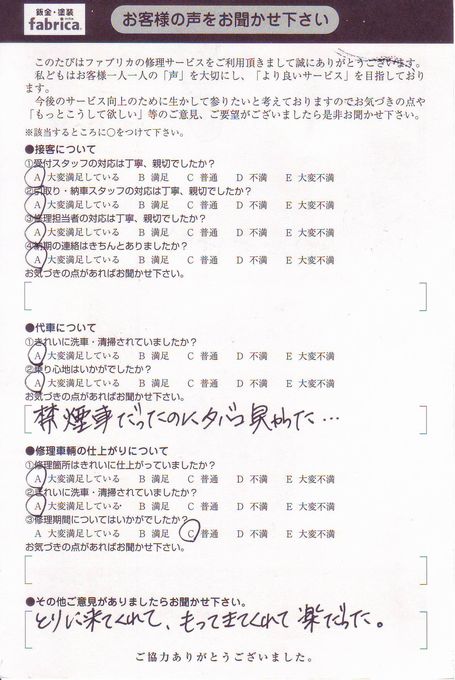 鈑金・塗装
fabrica.
お客様の声をお聞かせ下さい
このたびはファブリカの修理サービスをご利用頂きまして誠にありがとうございます。
私どもはお客様一人一人の「声」を大切にし、「より良いサービス」を目指しており
ます。
今後のサービス向上のために生かして参りたいと考えておりますのでお気づきの点や
「もっとこうして欲しい」等のご意見、ご要望がございましたら是非お聞かせ下さい。
※該当するところに○をつけて下さい。
●接客について
①受付スタッフの対応は丁寧、親切でしたか?
A 大変満足している B 満足 C 普通 D 不満 E 大変不満
②引取り・納車スタッフの対応は丁寧、親切でしたか?
A 大変満足している B 満足 C 普通 D 不満 E 大変不満
③修理担当者の対応は丁寧、親切でしたか?
A 大変満足している B 満足 C 普通 D 不満 E 大変不満
④納期の連絡はきちんとありましたか?
A 大変満足している B 満足 C 普通 D 不満 E 大変不満
お気づきの点があればお聞かせ下さい。
●代車について
①きれいに洗車・清掃されていましたか?
A 大変満足している B 満足 C 普通 D 不満 E 大変不満
②乗り心地はいかがでしたか?
A 大変満足している B 満足 C 普通 D 不満 E 大変不満
お気づきの点があればお聞かせ下さい。
禁煙車だったのにタバコ臭かった…
●修理車輌の仕上がりについて
①修理箇所はきれいに仕上がっていましたか?
A 大変満足している B 満足 C 普通 D 不満 E 大変不満
②きれいに洗車・清掃されていましたか?
A 大変満足している B 満足 C 普通 D 不満 E 大変不満
③修理期間についてはいかがでしたか?
A 大変満足している B 満足 C 普通 D 不満 E 大変不満
お気づきの点があればお聞かせ下さい。
●その他ご意見がありましたらお聞かせ下さい。
とりに来てくれて、もってきてくれて楽だった。
ご協力ありがとうございました。